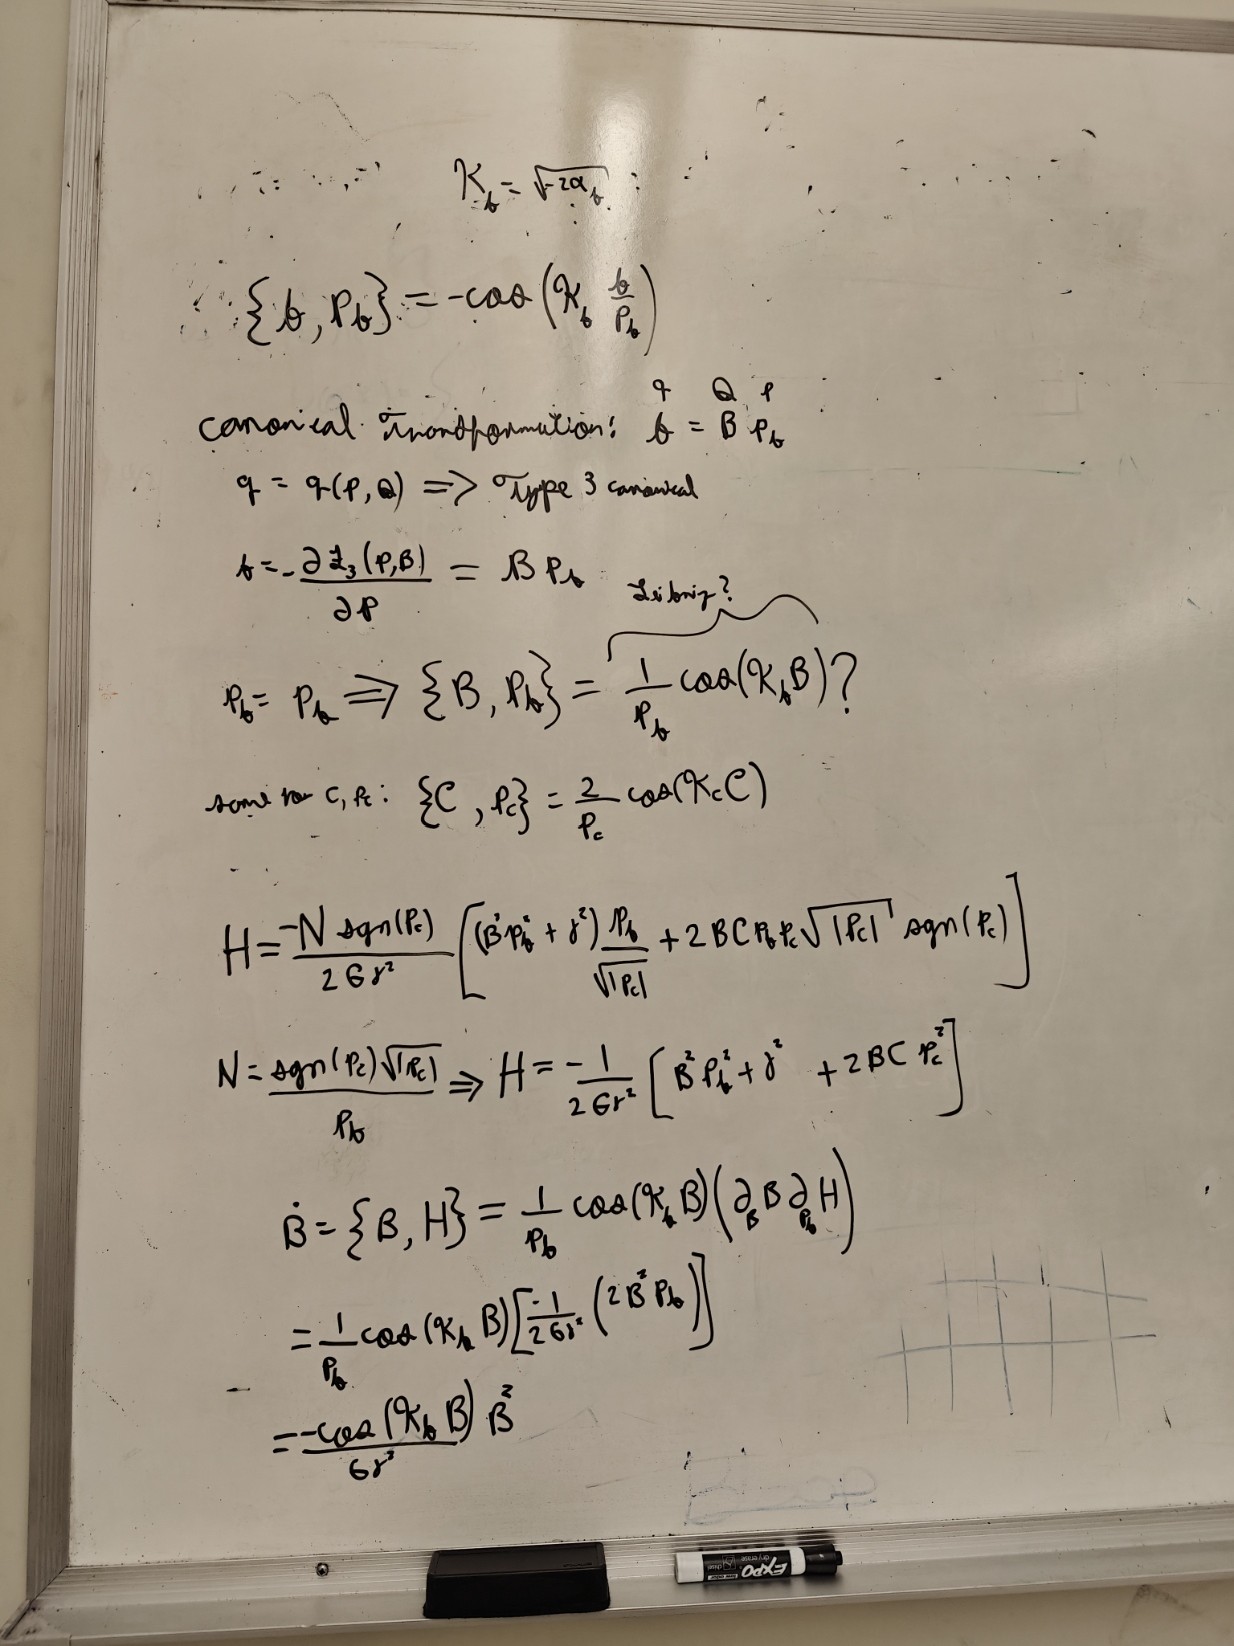 𝒦_b = √(-2α_b)
{b, P_b} = -cos(𝒦_b b/P_b)
q Q P
canonical transformation: b = B P_b
q = q(P, Q) ⇒ Type 3 canonical
b = -∂𝓛₃(P,B)/∂P = B P_b
Leibniz?
P_b = P_b ⇒ {B, P_b} = 1/P_b cos(𝒦_b B)?
same for C, P_c: {C, P_c} = 2/P_c cos(𝒦_c C)
H = -N sgn(P_c)/(2Gγ²) [(B²P_b² + γ²) P_b/√|P_c| + 2BC P_b P_c √|P_c| sgn(P_c)]
N = sgn(P_c)√|P_c|/P_b ⇒ H = -1/(2Gγ²) [B²P_b² + γ² + 2BC P_c²]
Ḃ = {B, H} = 1/P_b cos(𝒦_b B)(∂_B B ∂_{P_b} H)
= 1/P_b cos(𝒦_b B)[-1/(2Gγ²) (2B² P_b)]
= -cos(𝒦_b B)/(Gγ²) B²
EXPO
dry erase